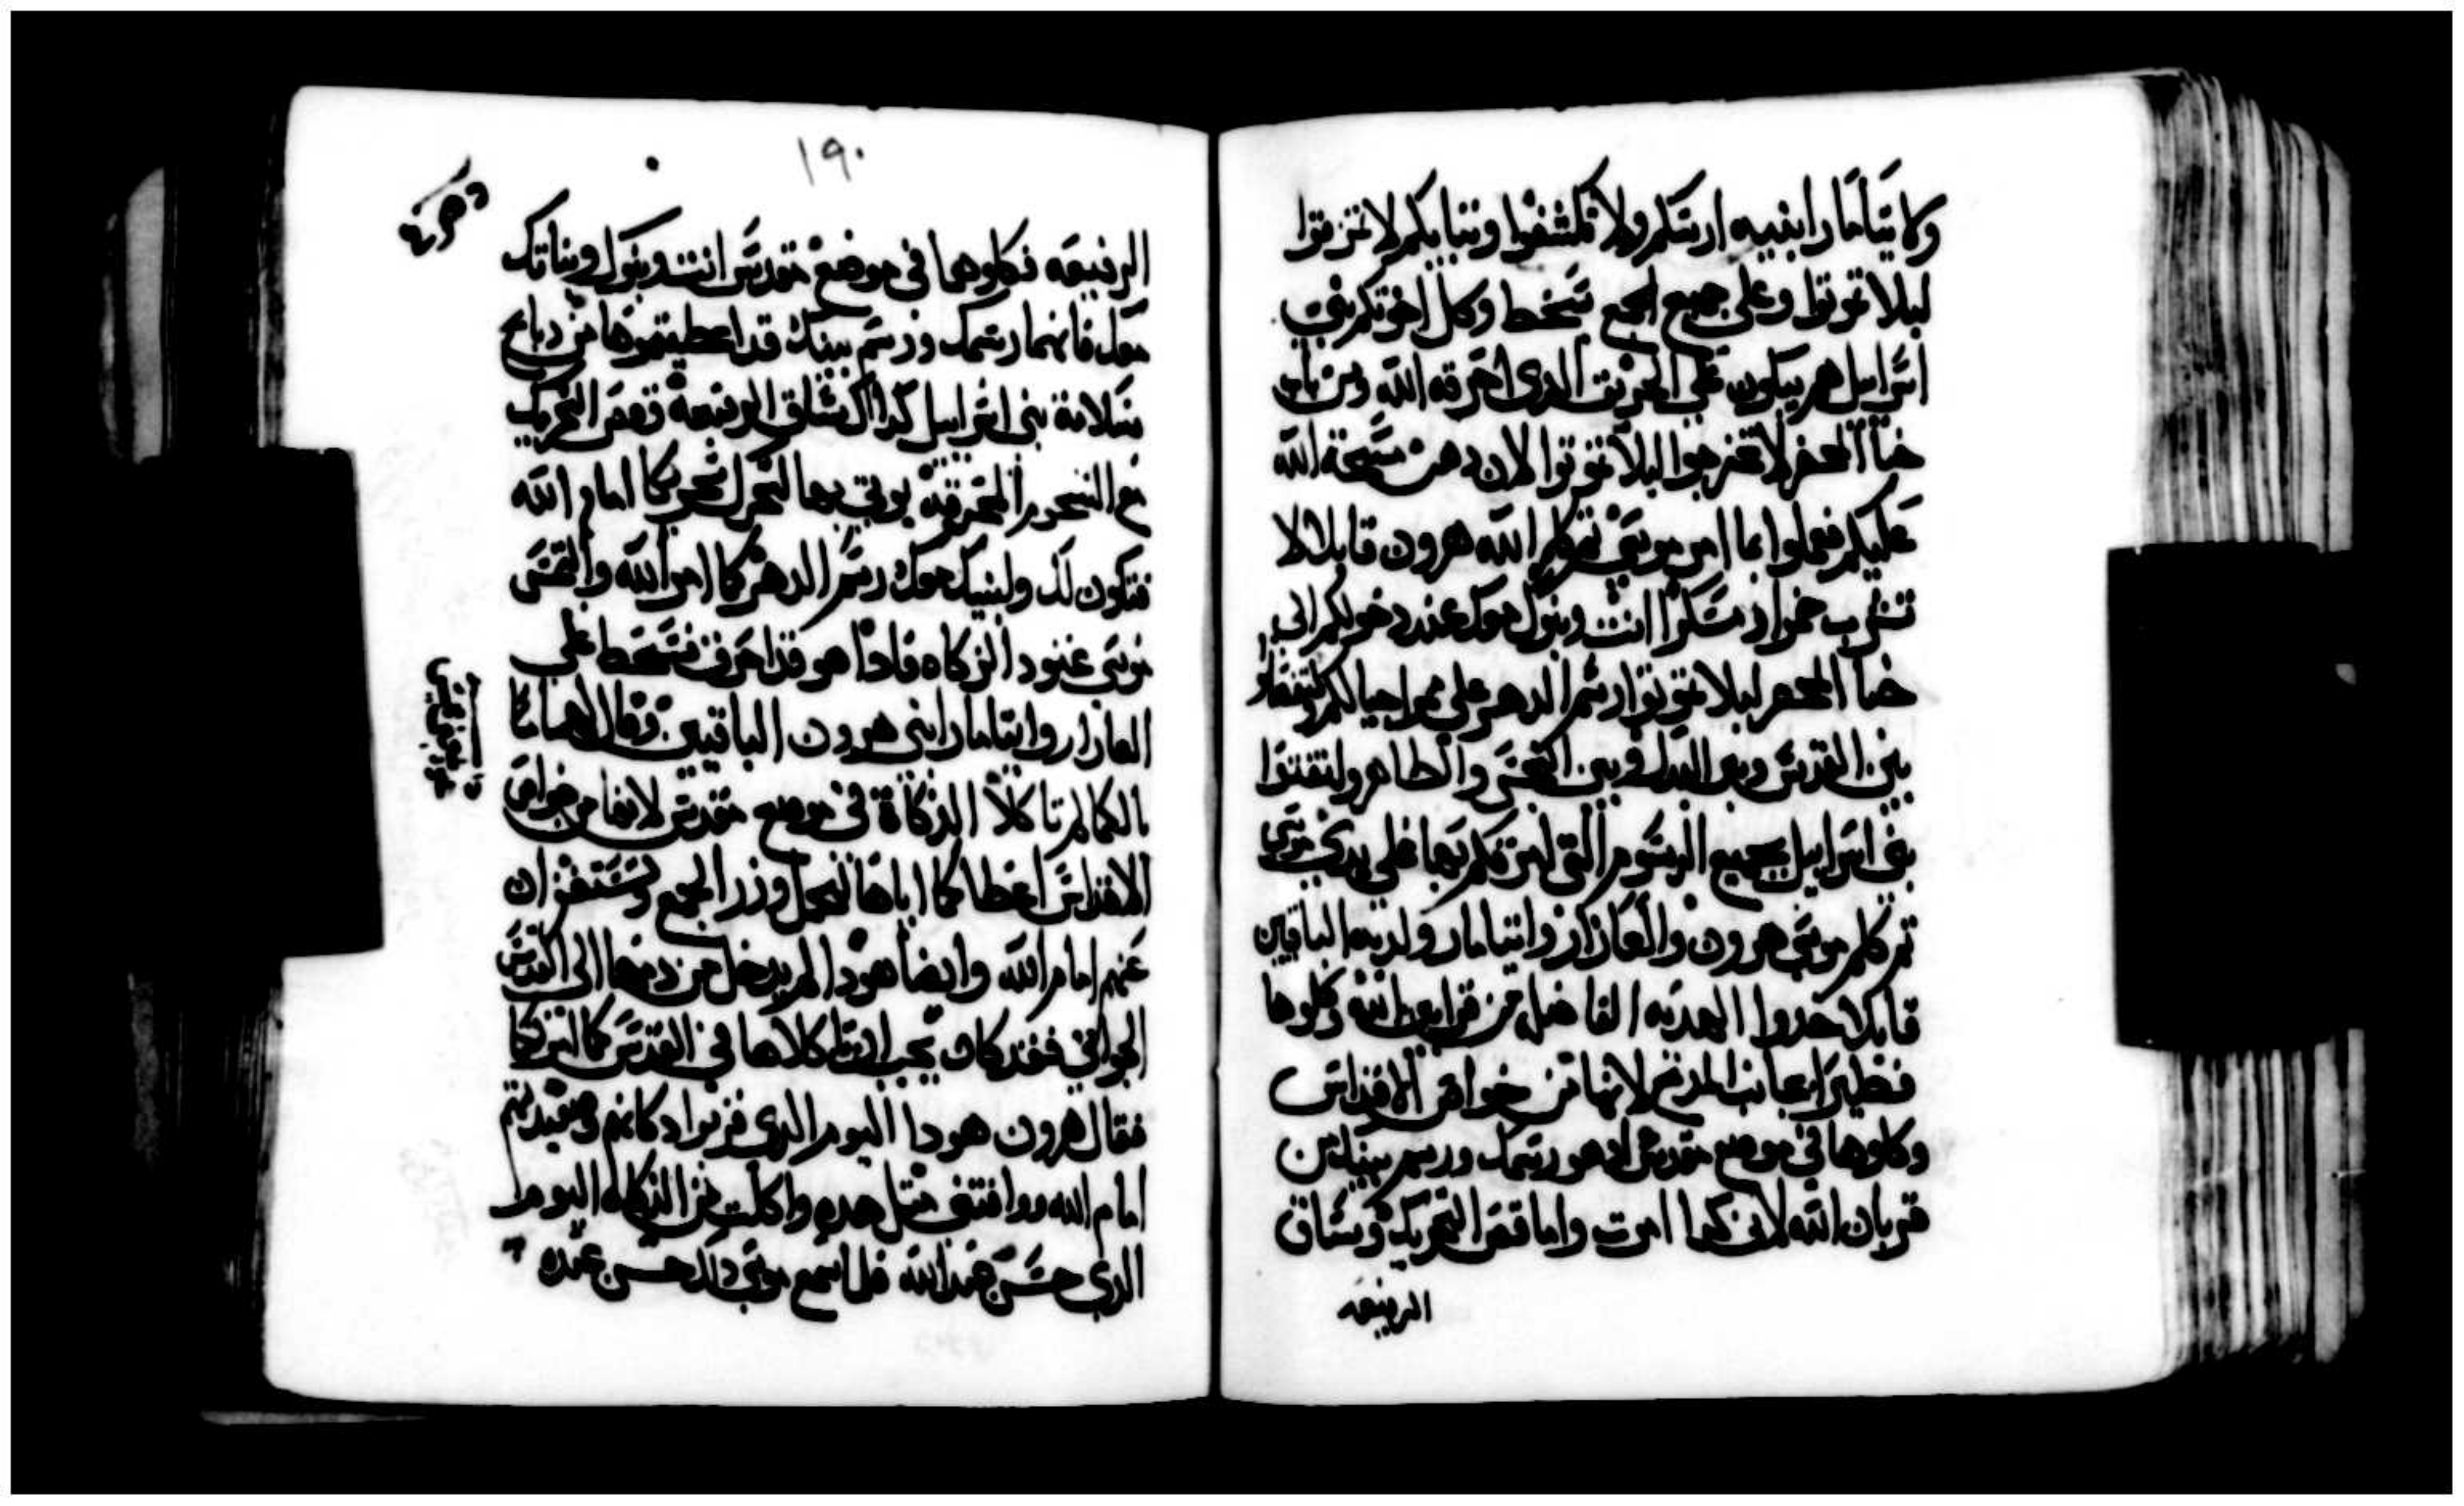 وايتامار ابنيه ارسكم ولا تكشفوا وثيابكم لا تمزقوا
ليلا تموتوا وعلى جميع الجمع سخط وكل اخوتكم بني
اسراييل هم يبكون على الحريق الدي احرقه الله ومن باب
خبا المحضر لا تخرجوا ليلا تموتوا لان دهن مسحة الله
عليكم فعملوا بما امر موسى تم كلم الله هرون قايلا لا
تشرب خمرا ومسكرا انت وبنوك معك عند دخولكم الي
خبا المحضر ليلا تموتوا رسم الدهر على ممر اجيالكم ولتفصلوا
بين القدس وبين البدل وبين النجس والطاهر ولتفتوا
بني اسراييل بجميع الرسوم التي لهم تكلم بها على يدي موسى
تم كلم موسى هرون والعازار وايتامار ولديه الباقيين
قايلا خدوا الهديه الفاضله من قرابين الله وكلوها
فطيرا بجانب المدبح لانها من خواص الاقداس
وكلوها في موضع مقدس اد هو رسمك ورسم بنيك من
قربان الله لاني كدا امرت واما قص التحريك وساق
الرفيعه
١٩٠
الرفيعه فكلوهما في موضع مقدس انت وبنوك وبناتك
معك فانهما رسمك ورسم بنيك قد اعطيتموها من دبايح
سلامة بني اسراييل كدا ساق الرفيعة وقص التحريك
مع الشحوم المحرقة يوتي بها لتحرك تحريكا امام الله
فتكون لك ولبنيك معك رسم الدهر كما امر الله والتمس
موسى عتود الزكاه فادا هو قد احرق فسخط على
العازار وايتامار ابني هرون الباقيين وقال لهما ما
بالكما لم تاكلا الزكاة في موضع مقدس لانها من خواص
الاقداس اعطاكما اياها لتحمل وزر الجمع وتستغفران
عنهم امام الله وايضا هودا لم يدخل من دمها الى القدس
الجواني فقد كان يجب ان تاكلاها في القدس كالتزكا
فقال هرون هودا اليوم الدي قربوا دكاتهم وصعيدتهم
امام الله ووافتني متل هده واكلت من الزكاه اليوم ا
الدي حسن عند الله فلما سمع موسى دلك حسن عنده